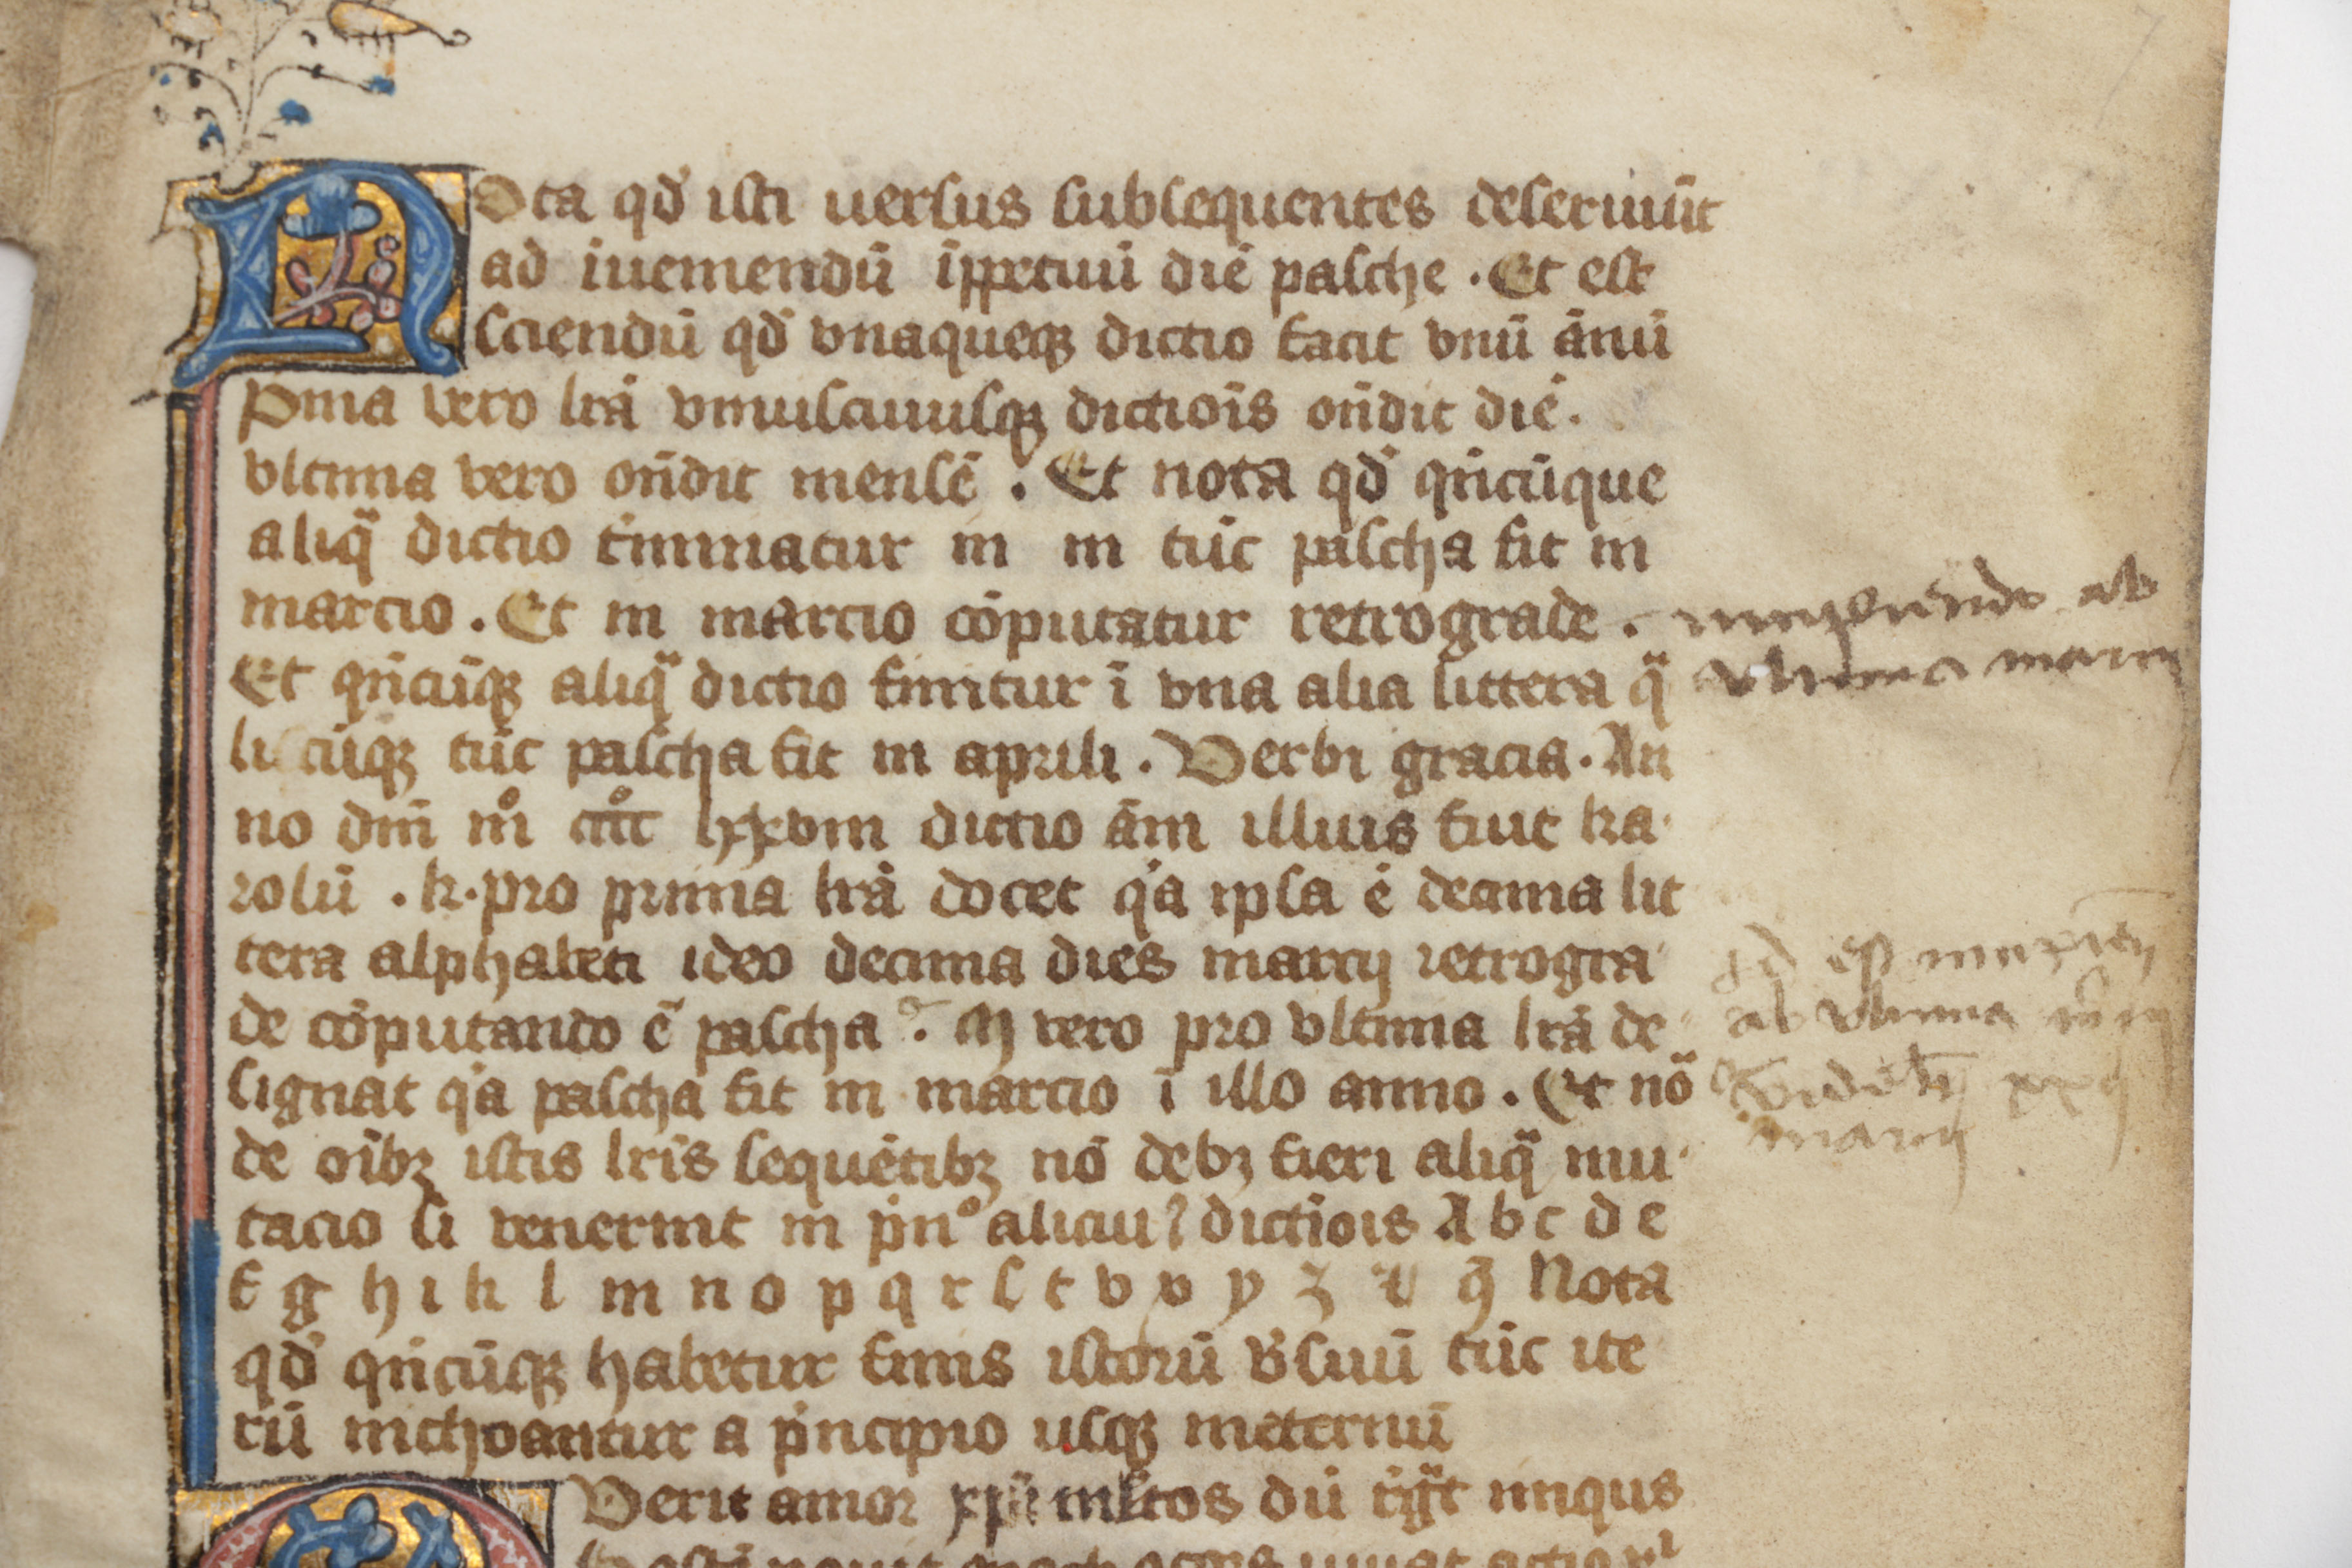 Nota qď isti uersus subsequentes deseruiūt
ad iueniendū īppetuū diē pasche . Et est
sciendū qď vnaqueqꝫ dictio facit vnū ānū
Pma vero lrā vniuscuiusqꝫ dictiōis oñdit diē.
vltima vero oñdit mensē . Et nota qď qñcūque
aliqͣ dictio t̄minatur in m tūc pascha fit in
marcio . Et in marcio cōputatur retrograde .
incipiendo ab
vltima marcij
Et qñcūqꝫ aliqͣ dictio finitur ī vna alia littera qͣ
liscūqꝫ tūc pascha fit in aprili . Verbi gracia . An
no dnī mͦ cccͦ lxxvııı dictio ām illius fuit ka
rolū . k . pro prima lrā docet qͥa ipsa ē decima lit
tera alphabeti ideo decima dies marcij retrogra
de cōputando ē pascha . M vero pro vltima lrā de
signat qͥa pascha fit in marcio ī illo anno . Et nō
qď est
ab vltima
marcij
dē oībꝫ istis lrīs sequētibꝫ nō debꝫ fieri aliqͣ mu
tacio si venerint in pͥnͦ alicuiꝰ dictiōis A b c d e
f g h i k l m n o p q r s t v v y z ꝛ ꝯ Nota
qď qñcūqꝫ habetur finis istorū v̄suū tūc ite
rū inchoantur a pͥncipio usqꝫ ineternū
Verit amor xp̄i dū nnqus